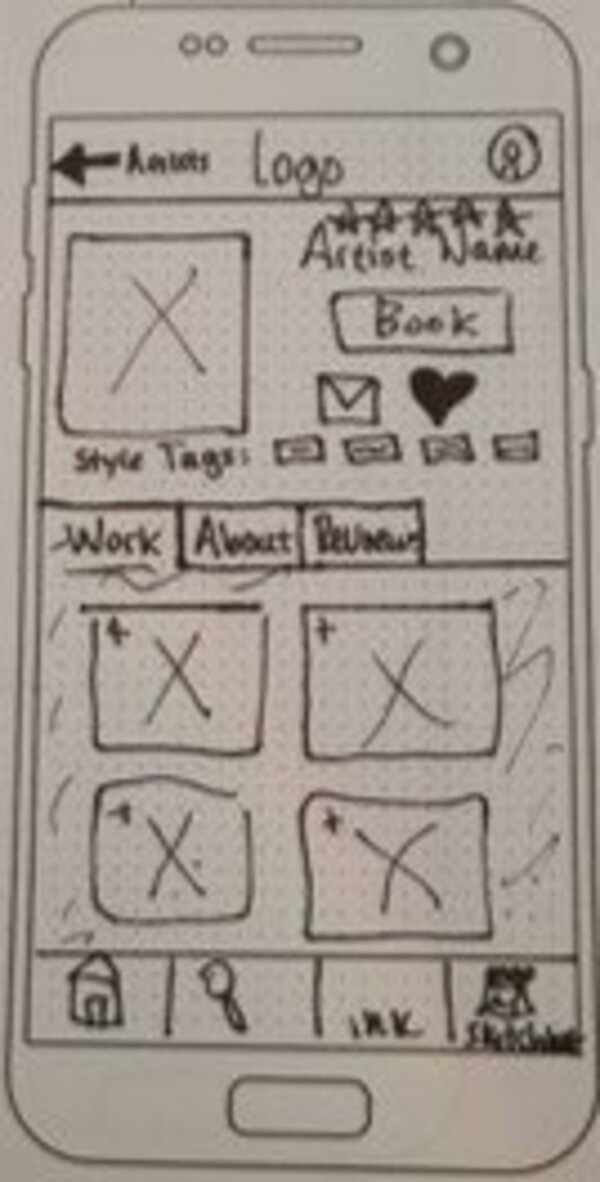 Artists Logo
Artist Name
Book
Style Tags:
Work About Reviews
ink
Sketchbook